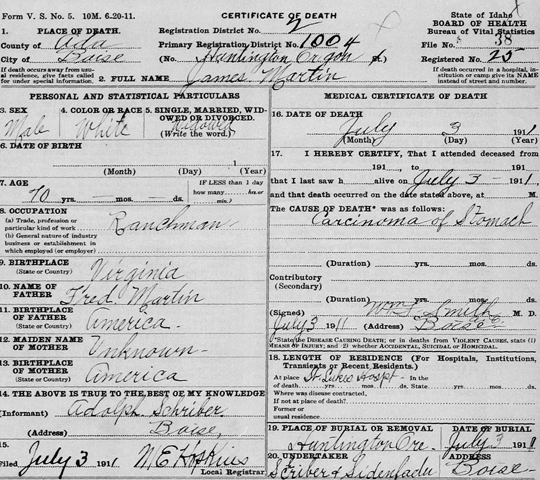 Form V. S. No. 5. 10M. 6-20-11.
CERTIFICATE OF DEATH
State of Idaho
BOARD OF HEALTH
Bureau of Vital Statistics
1. PLACE OF DEATH.
County of Ada
City of Boise
If death occurs away from usual residence, give facts called for under special information.
Registration District No. 2
Primary Registration District No. 1004
(No. Huntington Oregon St.)
2. FULL NAME James Martin
File No. 38
Registered No. 25
If death occurred in a hospital, institution or camp give its NAME instead of street and number.
PERSONAL AND STATISTICAL PARTICULARS
3. SEX
Male
4. COLOR OR RACE
White
5. SINGLE, MARRIED, WIDOWED OR DIVORCED.
Widowed
(Write the word.)
6. DATE OF BIRTH
1
(Month) (Day) (Year)
7. AGE
70 yrs. — mos. — ds.
IF LESS than 1 day how many hrs. or min.
8. OCCUPATION
(a) Trade, profession or particular kind of work Ranchman
(b) General nature of industry business or establishment in which employed (or employer)
9. BIRTHPLACE
(State or Country) Virginia
10. NAME OF FATHER Fred Martin
11. BIRTHPLACE OF FATHER
(State or Country) America
12. MAIDEN NAME OF MOTHER Unknown
13. BIRTHPLACE OF MOTHER
(State or Country) America
14. THE ABOVE IS TRUE TO THE BEST OF MY KNOWLEDGE
(Informant) Adolph Schriber
(Address) Boise,
15.
Filed July 3 1911
Local Registrar
MEDICAL CERTIFICATE OF DEATH
16. DATE OF DEATH
July 3 1911
(Month) (Day) (Year)
17. I HEREBY CERTIFY, That I attended deceased from
191 , to 191 ,
that I last saw h alive on July 3 1911,
and that death occurred on the date stated above, at M.
The CAUSE OF DEATH* was as follows:
Carcinoma of Stomach
(Duration) yrs. mos. ds.
Contributory
(Secondary)
(Duration) yrs. mos. ds.
(Signed) Smith M. D.
July 3 1911 (Address) Boise
*State the DISEASE CAUSING DEATH; or in deaths from VIOLENT CAUSES, state (1) MEANS OF INJURY; and (2) whether ACCIDENTAL, SUICIDAL or HOMICIDAL.
18. LENGTH OF RESIDENCE (For Hospitals, Institutions, Transients or Recent Residents.)
At place St. Lukes Hospt - In the
of death yrs. mos. ds. State yrs. mos. ds.
Where was disease contracted,
If not at place of death?
Former or
usual residence.
19. PLACE OF BURIAL OR REMOVAL
Huntington Ore.
DATE OF BURIAL
July 3 1911
20. UNDERTAKER
ADDRESS
Boise